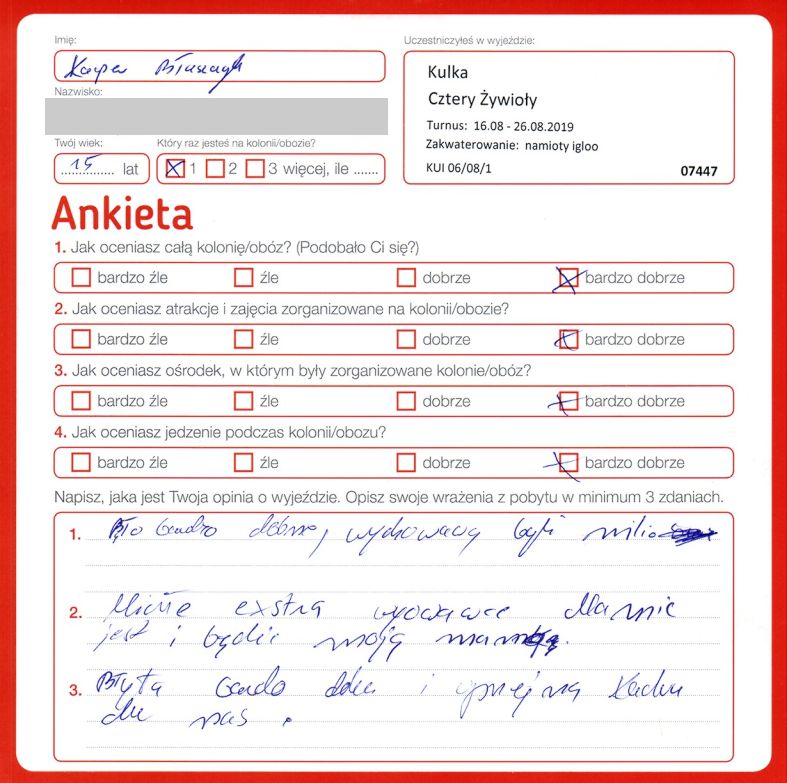 Imię:
Kacper
Nazwisko:
Twój wiek:
15 lat
Który raz jesteś na kolonii/obozie?
1 2 3 więcej, ile .......
Uczestniczyłeś w wyjeździe:
Kulka
Cztery Żywioły
Turnus: 16.08 - 26.08.2019
Zakwaterowanie: namioty igloo
KUI 06/08/1 07447
Ankieta
1. Jak oceniasz całą kolonię/obóz? (Podobało Ci się?)
bardzo źle źle dobrze bardzo dobrze
2. Jak oceniasz atrakcje i zajęcia zorganizowane na kolonii/obozie?
bardzo źle źle dobrze bardzo dobrze
3. Jak oceniasz ośrodek, w którym były zorganizowane kolonie/obóz?
bardzo źle źle dobrze bardzo dobrze
4. Jak oceniasz jedzenie podczas kolonii/obozu?
bardzo źle źle dobrze bardzo dobrze
Napisz, jaka jest Twoja opinia o wyjeździe. Opisz swoje wrażenia z pobytu w minimum 3 zdaniach.
1. Było bardzo dobrze, wychowawcy byli
2. exstra dla mnie
jest i będzie moją mamą.
3. Była i
dla nas.